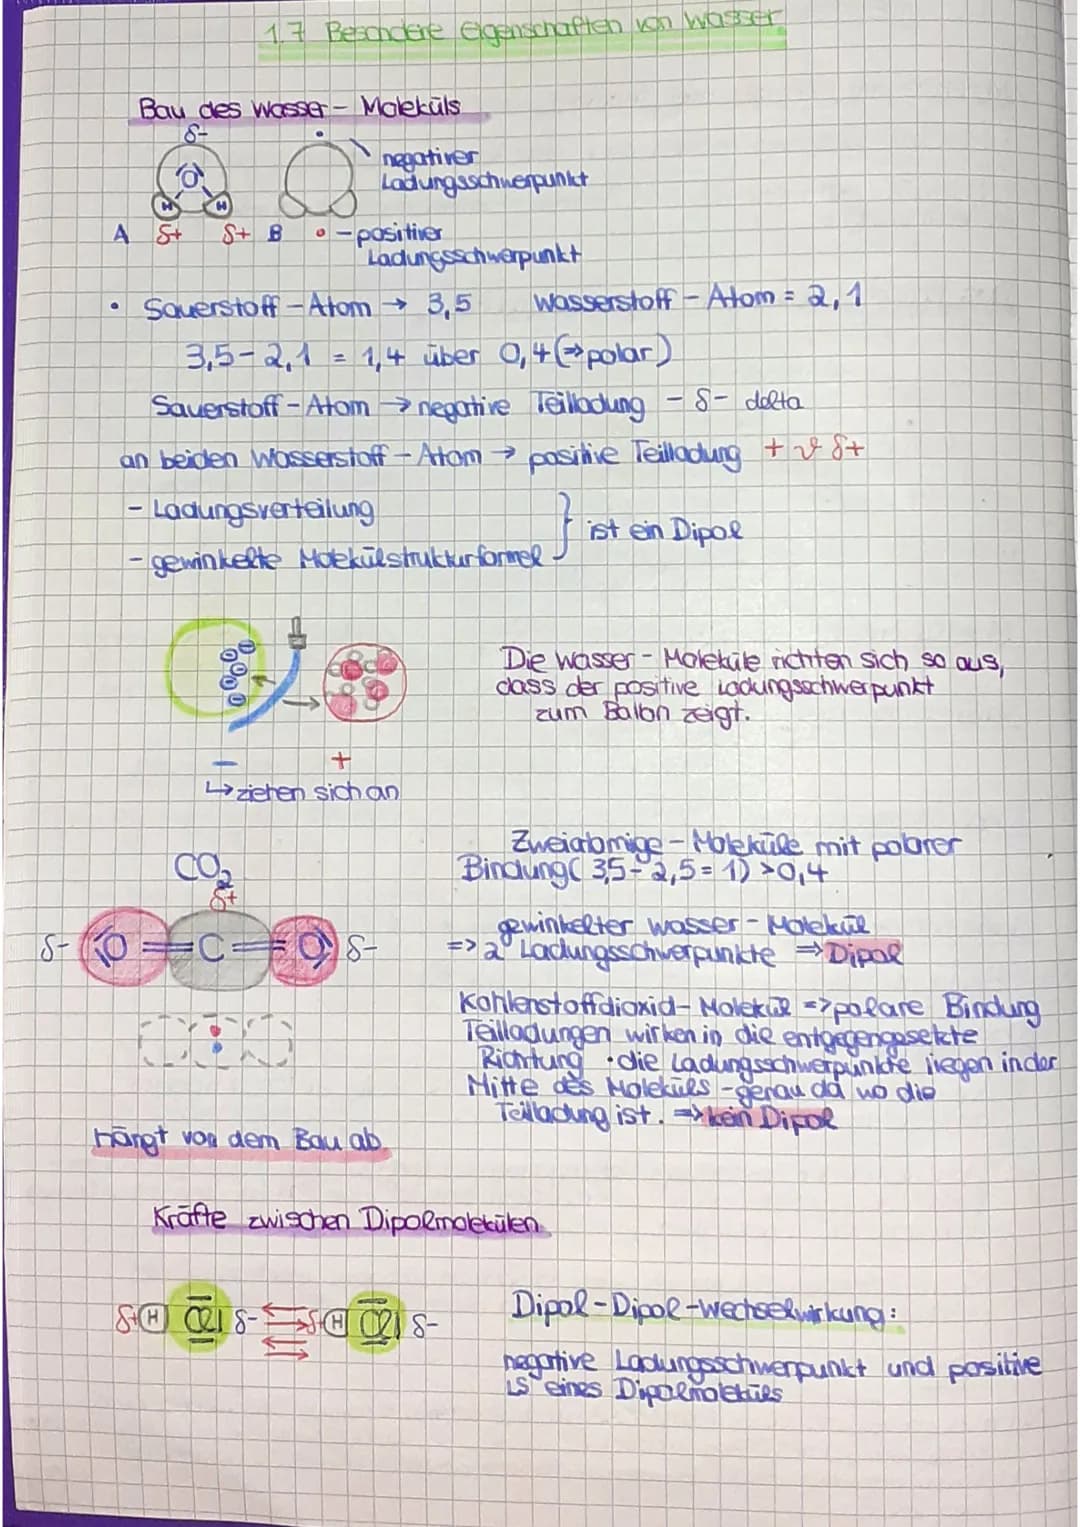 1.7 Besondere Eigenschaften von Wasser
Bau des Wasser - Moleküls
δ-
negativer
Ladungsschwerpunkt
O
H H
A δ+ δ+ B - positiver
Ladungsschwerpunkt
• Sauerstoff - Atom → 3,5 Wasserstoff - Atom = 2,1
3,5 - 2,1 = 1,4 über 0,4 (⇒ polar)
Sauerstoff - Atom → negative Teilladung - δ- delta
an beiden Wasserstoff - Atom → positive Teilladung + δ+
- Ladungsverteilung
- gewinkelte Molekülstrukturformel } ist ein Dipol
Die Wasser - Moleküle richten sich so aus,
dass der positive Ladungsschwerpunkt
zum Ballon zeigt.
- +
↳ ziehen sich an
Zweiatomige - Moleküle mit polarer
Bindung ( 3,5 - 2,5 = 1) > 0,4
CO₂
δ+
δ- O = C = O δ-
gewinkelter Wasser - Molekül
=> 2 Ladungsschwerpunkte ⇒ Dipol
Kohlenstoffdioxid - Molekül => polare Bindung
Teilladungen wirken in die entgegengesetzte
Richtung · die Ladungsschwerpunkte liegen in der
Mitte des Moleküls - genau da wo die
Teilladung ist. ⇒ kein Dipol
hängt von dem Bau ab
Kräfte zwischen Dipolmolekülen
δ+ H Cl δ- δ+ H Cl δ-
Dipol - Dipol - Wechselwirkung:
negative Ladungsschwerpunkt und positive
LS eines Dipolmoleküls